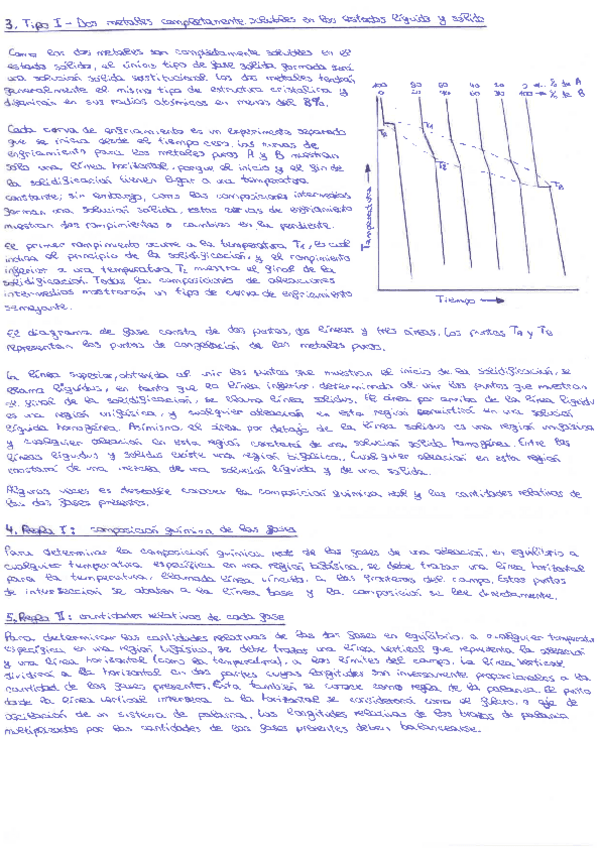 3. Tipo I - Dos metales completamente solubles en los estados líquido y sólido
Como los dos metales son completamente solubles en el
estado sólido, el único tipo de fase sólida formada será
una solución sólida sustitucional. Los dos metales tendrán
generalmente el mismo tipo de estructura cristalina y
diferirán en sus radios atómicos en menos del 8%.
Cada curva de enfriamiento es un experimento separado
que se inicia desde el tiempo cero. Las curvas de
enfriamiento para los metales puros A y B muestran
sólo una línea horizontal, porque el inicio y el fin de
la solidificación tienen lugar a una temperatura
constante; sin embargo, como las composiciones intermedias
forman una solución sólida, estas curvas de enfriamiento
muestran dos rompimientos o cambios en la pendiente.
El primer rompimiento ocurre a la temperatura T1, la cual
indica el principio de la solidificación, y el rompimiento
inferior a una temperatura T2 muestra el final de la
solidificación. Todas las composiciones de aleaciones
intermedias mostrarán un tipo de curva de enfriamiento
semejante.
100 80 60 40 20 0 ← % de A
0 20 40 60 80 100 ← % de B
TA
T1
T2
TB
Temperatura →
Tiempo →
El diagrama de fase consta de dos puntos, dos líneas y tres áreas. Los puntos TA y TB
representan los puntos de congelación de los metales puros.
La línea superior, obtenida al unir los puntos que muestran el inicio de la solidificación, se
llama líquidus, en tanto que la línea inferior, determinada al unir los puntos que muestran
el final de la solidificación, se llama línea solidus. El área por arriba de la línea líquidus
es una región unifásica, y cualquier aleación en esta región consistirá en una solución
líquida homogénea. Asimismo, el área por debajo de la línea solidus es una región unifásica
y cualquier aleación en esta región constará de una solución sólida homogénea. Entre las
líneas líquidus y solidus existe una región bifásica. Cualquier aleación en esta región
constará de una mezcla de una solución líquida y de una sólida.
Algunas veces es deseable conocer la composición química real y las cantidades relativas de
las dos fases presentes.
4. Regla I: composición química de las fases
Para determinar la composición química real de las fases de una aleación, en equilibrio a
cualquier temperatura específica en una región bifásica, se debe trazar una línea horizontal
para la temperatura, llamada línea vínculo, a las fronteras del campo. Estos puntos
de intersección se abaten a la línea base y la composición se lee directamente.
5. Regla II: cantidades relativas de cada fase
Para determinar las cantidades relativas de las dos fases en equilibrio, a cualquier temperatura
específica en una región bifásica, se debe trazar una línea vertical que representa la aleación
y una línea horizontal (como la temperatura), a los límites del campo. La línea vertical
dividirá a la horizontal en dos partes cuyas longitudes son inversamente proporcionales a la
cantidad de las fases presentes. Esta también se conoce como regla de la palanca. El punto
donde la línea vertical interseca a la horizontal se considerará como el fulcro, o eje de
oscilación de un sistema de palanca. Las longitudes relativas de los brazos de palanca
multiplicadas por las cantidades de las fases presentes deben balancearse.